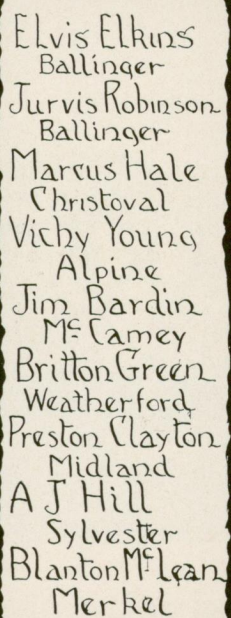 Elvis Elkins
Ballinger
Jurvis Robinson
Ballinger
Marcus Hale
Christoval
Vichy Young
Alpine
Jim Bardin
Mc Camey
Britton Green
Weatherford
Preston Clayton
Midland
A J Hill
Sylvester
Blanton McLean
Merkel